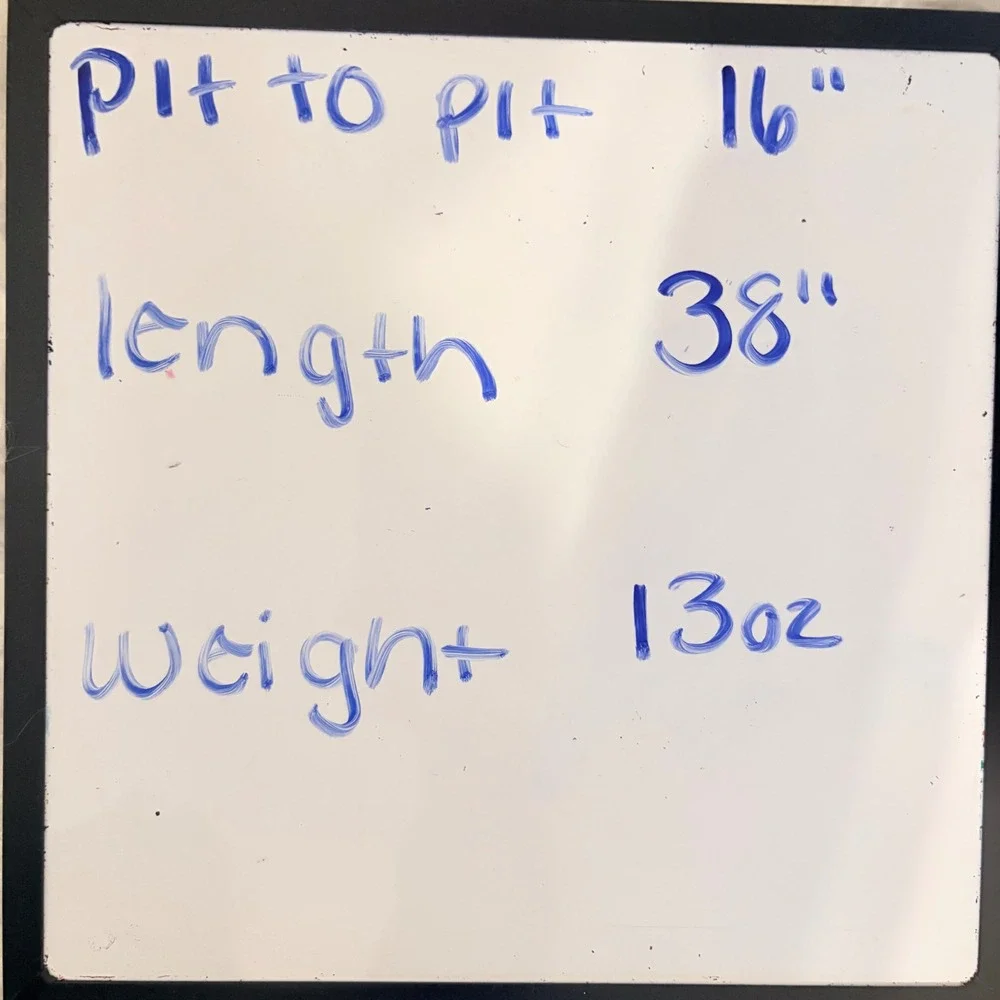 pit to pit 16"
length 38"
weight 13oz